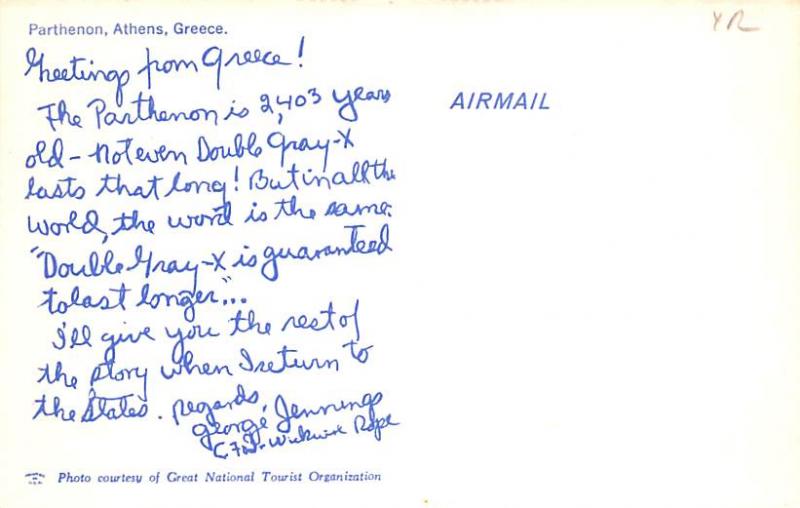 Parthenon, Athens, Greece.
YR
Greetings from Greece!
The Parthenon is 2,403 years
old - Not even Double Gray-X
lasts that long! But in all the
world, the word is the same:
"Double Gray-X is guaranteed
to last longer"...
I'll give you the rest of
the story when I return to
the States. Regards,
George Jennings
CF&I-Wickwire Rope
AIRMAIL
Photo courtesy of Great National Tourist Organization